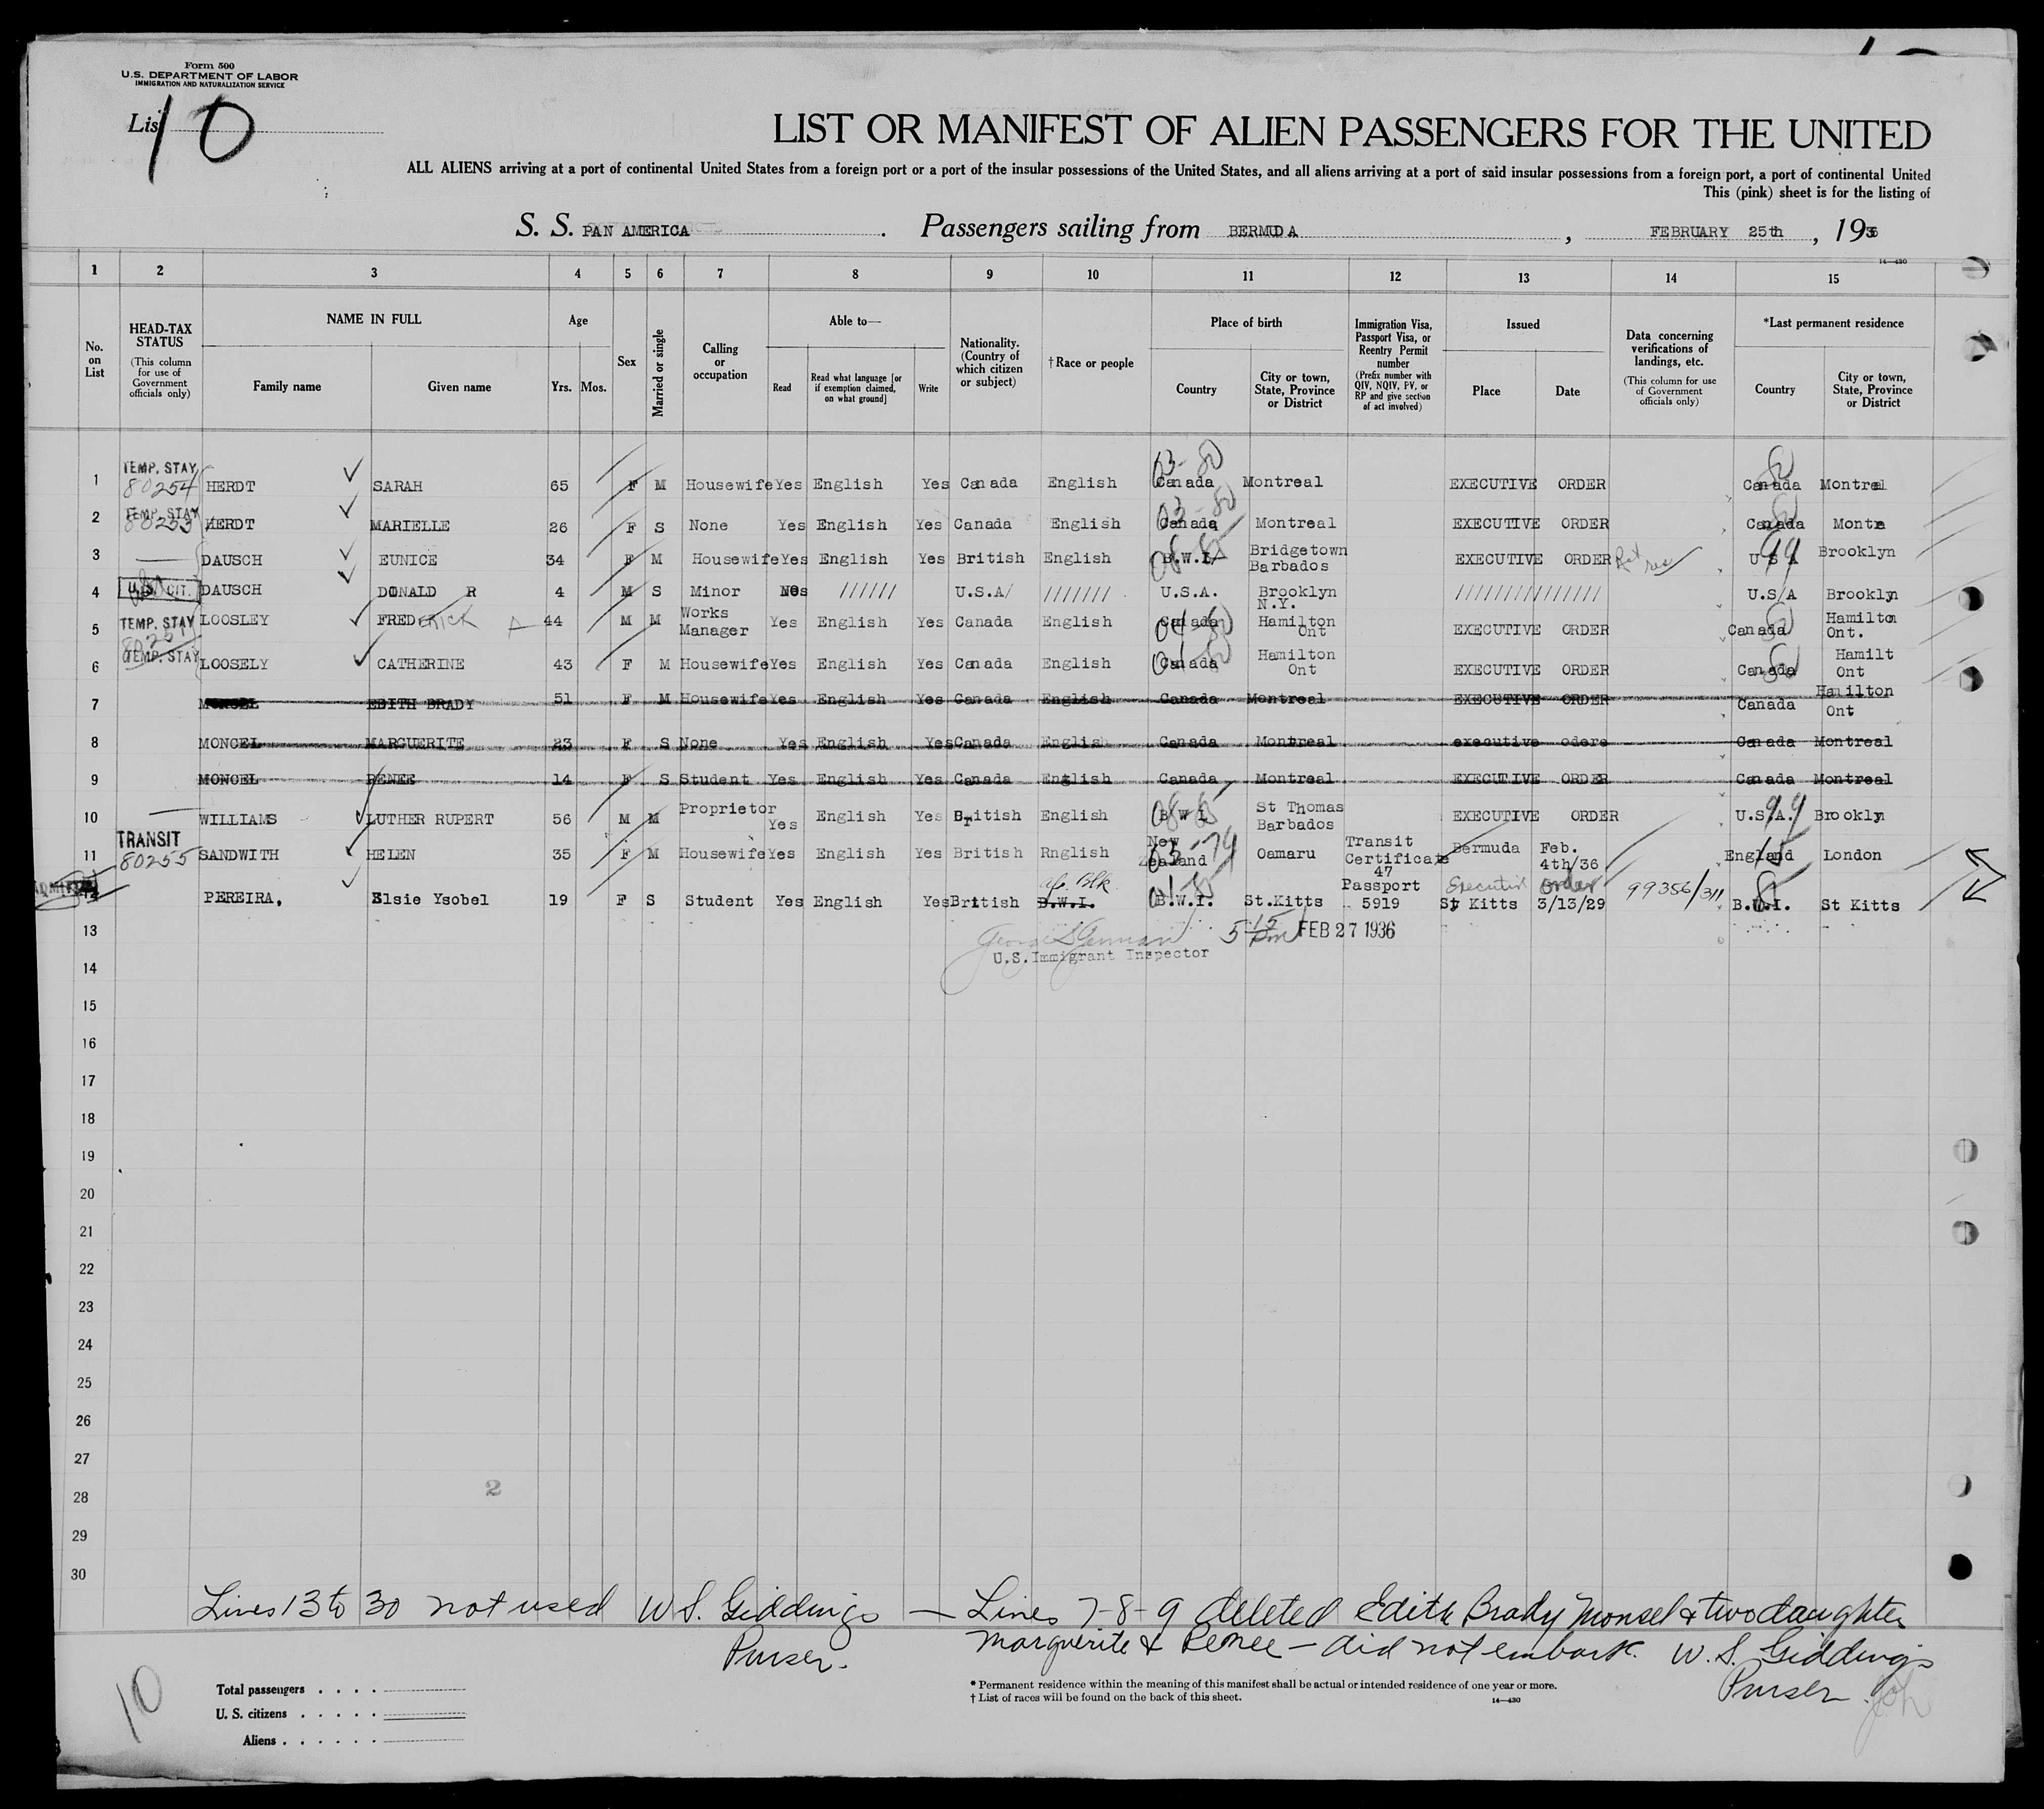 Form 500
U.S. DEPARTMENT OF LABOR
IMMIGRATION AND NATURALIZATION SERVICE
List 10
LIST OR MANIFEST OF ALIEN PASSENGERS FOR THE UNITED
ALL ALIENS arriving at a port of continental United States from a foreign port or a port of the insular possessions of the United States, and all aliens arriving at a port of said insular possessions from a foreign port, a port of continental United
This (pink) sheet is for the listing of
S. S. PAN AMERICA . Passengers sailing from BERMUDA , FEBRUARY 25th , 1936
14—430
1 2 3 4 5 6 7 8 9 10 11 12 13 14 15
No. on List
HEAD-TAX STATUS (This column for use of Government officials only)
NAME IN FULL Family name Given name
Age Yrs. Mos.
Sex
Married or single
Calling or occupation
Able to— Read Read what language [or if exemption claimed, on what ground] Write
Nationality. (Country of which citizen or subject)
†Race or people
Place of birth Country City or town, State, Province or District
Immigration Visa, Passport Visa, or Reentry Permit number (Prefix number with QIV, NQIV, PV, or RP and give section of act involved)
Issued Place Date
Data concerning verifications of landings, etc. (This column for use of Government officials only)
*Last permanent residence Country City or town, State, Province or District
1 TEMP. STAY 80254 HERDT SARAH 65 F M Housewife Yes English Yes Canada English 03-80 Canada Montreal EXECUTIVE ORDER Canada Montreal
2 TEMP. STAY 80253 HERDT MARIELLE 26 F S None Yes English Yes Canada English 03-80 Canada Montreal EXECUTIVE ORDER Canada Montre
3 DAUSCH EUNICE 34 F M Housewife Yes English Yes British English B.W.I. Bridgetown Barbados EXECUTIVE ORDER Ret res U S A 99 Brooklyn
4 U.S. CIT. DAUSCH DONALD R 4 M S Minor No ////// U.S.A/ /////// U.S.A. Brooklyn N.Y. /////////////// U.S/A Brooklyn
5 TEMP. STAY LOOSLEY FREDERICK A 44 M M Works Manager Yes English Yes Canada English Canada Hamilton Ont EXECUTIVE ORDER Canada Hamilton Ont.
6 TEMP. STAY LOOSELY CATHERINE 43 F M Housewife Yes English Yes Canada English Canada Hamilton Ont EXECUTIVE ORDER Canada Hamilt Ont
7 EDITH BRADY 51 F M Housewife Yes English Yes Canada English Canada Montreal EXECUTIVE ORDER Canada Hamilton Ont
8 MONCEL MARGUERITE 23 F S None Yes English Yes Canada English Canada Montreal executive odere Canada Montreal
9 MONCEL RENEE 14 F S Student Yes English Yes Canada English Canada Montreal EXECUTIVE ORDER Canada Montreal
10 WILLIAMS LUTHER RUPERT 56 M M Proprietor Yes English Yes British English B W I St Thomas Barbados EXECUTIVE ORDER U.S.A. 99 Brooklyn
11 TRANSIT 80255 SANDWITH HELEN 35 F M Housewife Yes English Yes British Rnglish New Zealand Oamaru Transit Certificate 47 Bermuda Feb. 4th/36 England London
12 PEREIRA, Elsie Ysobel 19 F S Student Yes English Yes British Af. Blk. B.W.I. B.W.I. St.Kitts Passport 5919 Executive order St Kitts 3/13/29 99356/311 B.W.I. St Kitts
13 5 15 pm FEB 27 1936
U.S.Immigrant Inspector
14
15
16
17
18
19
20
21
22
23
24
25
26
27
28 2
29
30
Lines 13 to 30 not used W S. Giddings — Lines 7-8-9 deleted Edith Brady Monsel & two daughter
Purser. Marguerite & Renee — did not embark. W. S. Giddings
Purser.
10
Total passengers
U. S. citizens
Aliens
* Permanent residence within the meaning of this manifest shall be actual or intended residence of one year or more.
† List of races will be found on the back of this sheet. 14—430